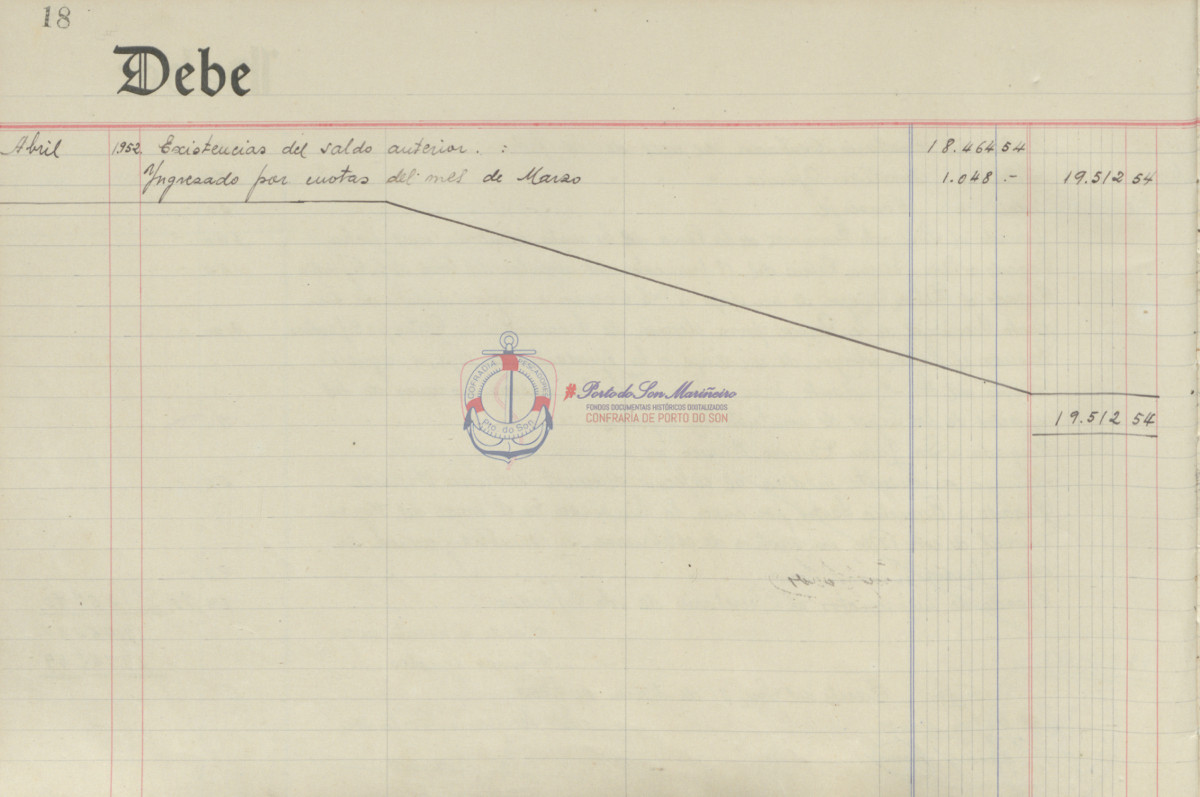 18
Debe
Abril 1952. Existencias del saldo anterior. : 18.464 54
Yngresado por cuotas del mes de Marzo 1.048 .- 19.512 54
COFRADIA PESCADORES
Pto. do Son
#Porto do Son Mariñeiro
FONDOS DOCUMENTAIS HISTÓRICOS DIXITALIZADOS
CONFRARÍA DE PORTO DO SON
19.512 54